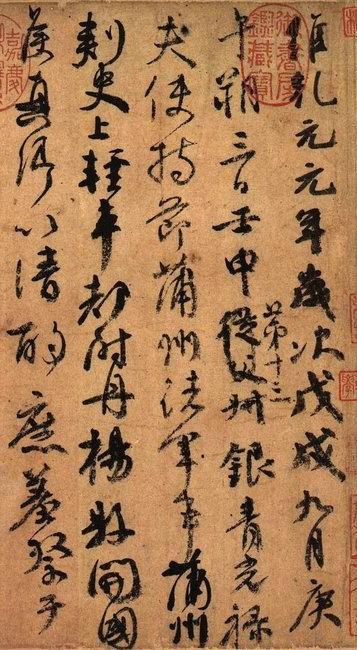 維乾元元年歲次戊戌九月庚
午朔三日壬申從父第十三叔銀青光祿
夫使持節蒲州諸軍事蒲州
刺史上輕車都尉丹楊縣開國
侯真卿以清酌庶羞祭于